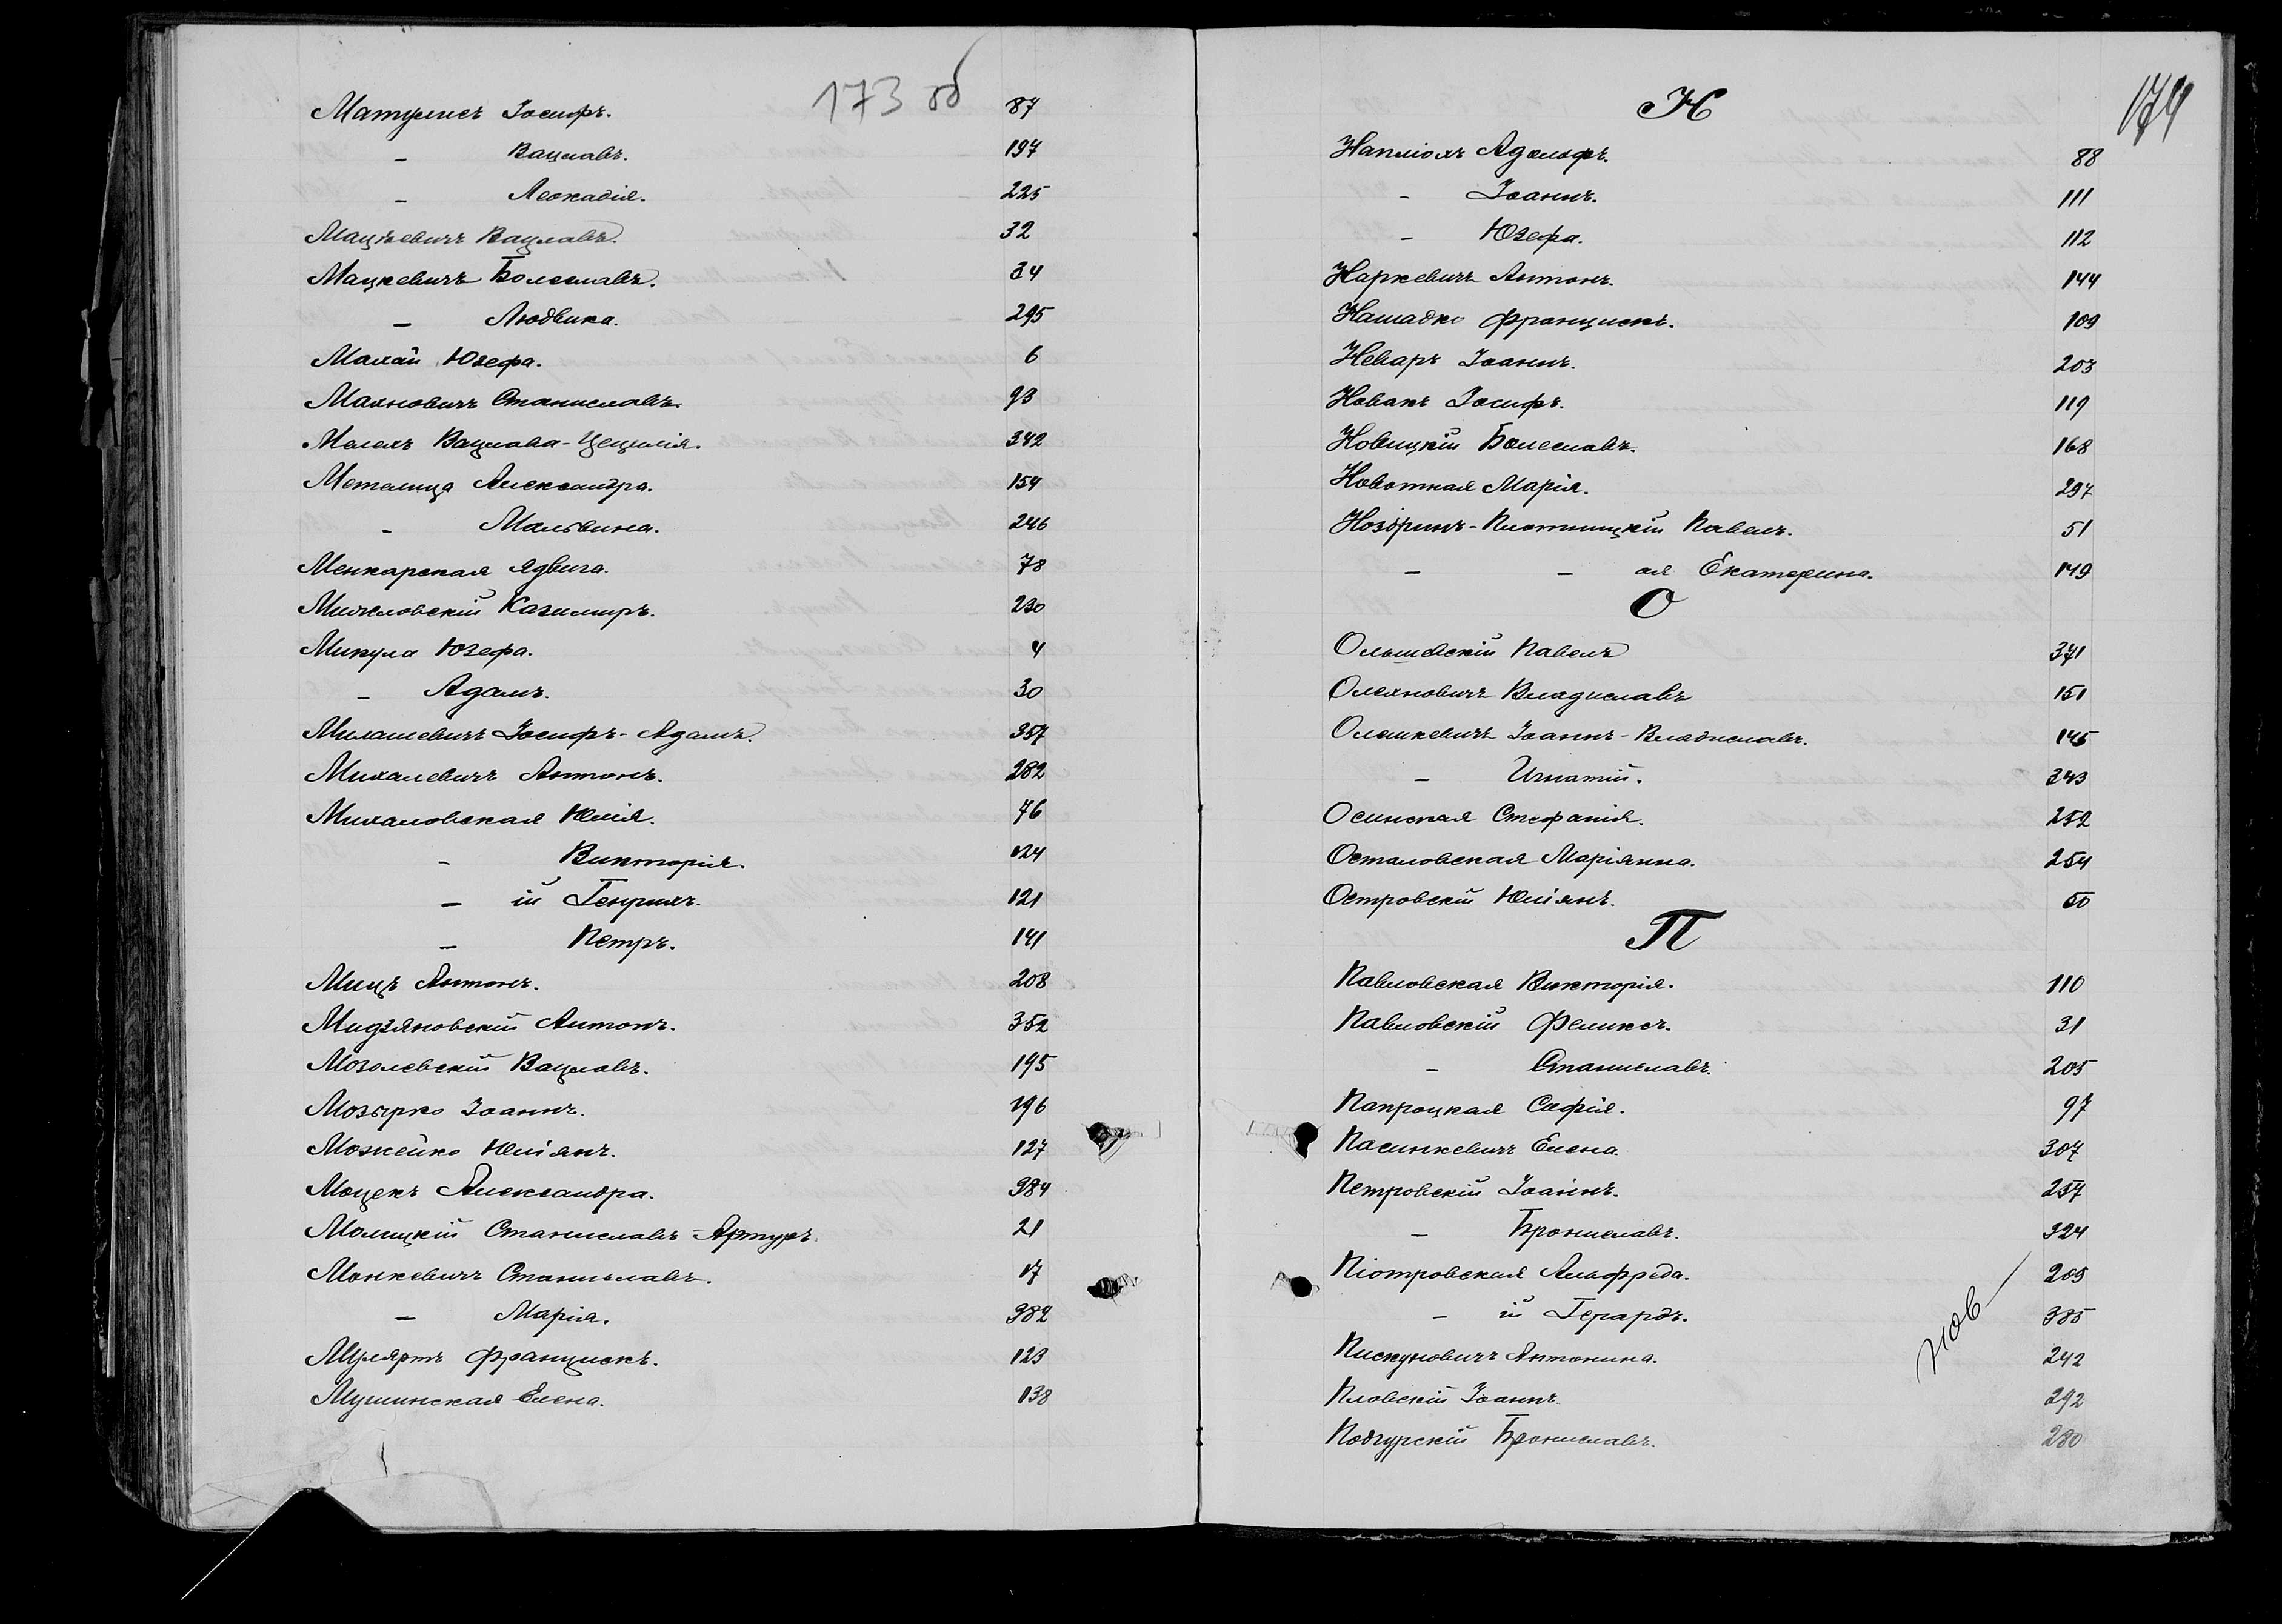 173 об
Матулисъ Іосифъ. 87
- Вацлавъ. 197
- Леокадія. 225
Мацѣевичъ Вацлавъ. 32
Мацкевичъ Болеславъ. 34
- Людвика. 295
Махай Юзефа. 6
Махновичъ Станиславъ. 93
Мелехъ Вацлава-Цецилія. 342
Метелица Александра. 154
- Мальвина. 246
Менкарская Ядвига. 78
Казимиръ. 230
Микула Юзефа. 4
- Адамъ. 30
Милашевичъ Іосифъ-Адамъ. 357
Михалевичъ Антонъ. 282
Михаловская Юлія. 76
- Викторія. 124
- ій Генрихъ. 121
- Петръ. 141
Мицъ Антонъ. 208
Мидзяновскій Антонъ. 352
Мозолевскій Вацлавъ. 195
Мозырко Іоаннъ. 196
Можейко Юліянъ. 127
Моцекъ Александра. 384
Молицкій Станиславъ-Артуръ. 21
Монкевичъ Станиславъ. 17
- Марія. 382
Мулярть Францискъ. 123
Мушинская Елена. 138
174
Н
Напліохъ Адольфъ. 88
- Іоаннъ. 111
- Юзефа. 112
Наркевичъ Антонъ. 144
Нашадко Францискъ. 109
Неваръ Іоаннъ. 203
Новакъ Іосифъ. 119
Новицкій Болеславъ. 168
Новотная Марія. 297
Ноздринъ-Плотницкій Павелъ. 51
- - ая Екатерина. 149
О
Ольшевскій Павелъ 371
Олехновичъ Владиславъ 151
Олешкевичъ Іоаннъ-Владиславъ. 145
- Игнатій. 343
Осинская Стефанія. 252
Осталовская Маріянна. 254
Островскій Юліянъ. 50
П
Павловская Викторія. 110
Павловскій Феликсъ. 31
- Станиславъ. 205
Папроцкая Софія. 97
Пасинкевичъ Елена. 307
Петровскій Іоаннъ. 257
- Брониславъ. 324
Піотровская Альфреда. 209
- ій Герардъ. 385
нов-
Пискуновичъ Антонина. 242
Пловскій Іоаннъ. 292
Подгурскій Брониславъ. 280